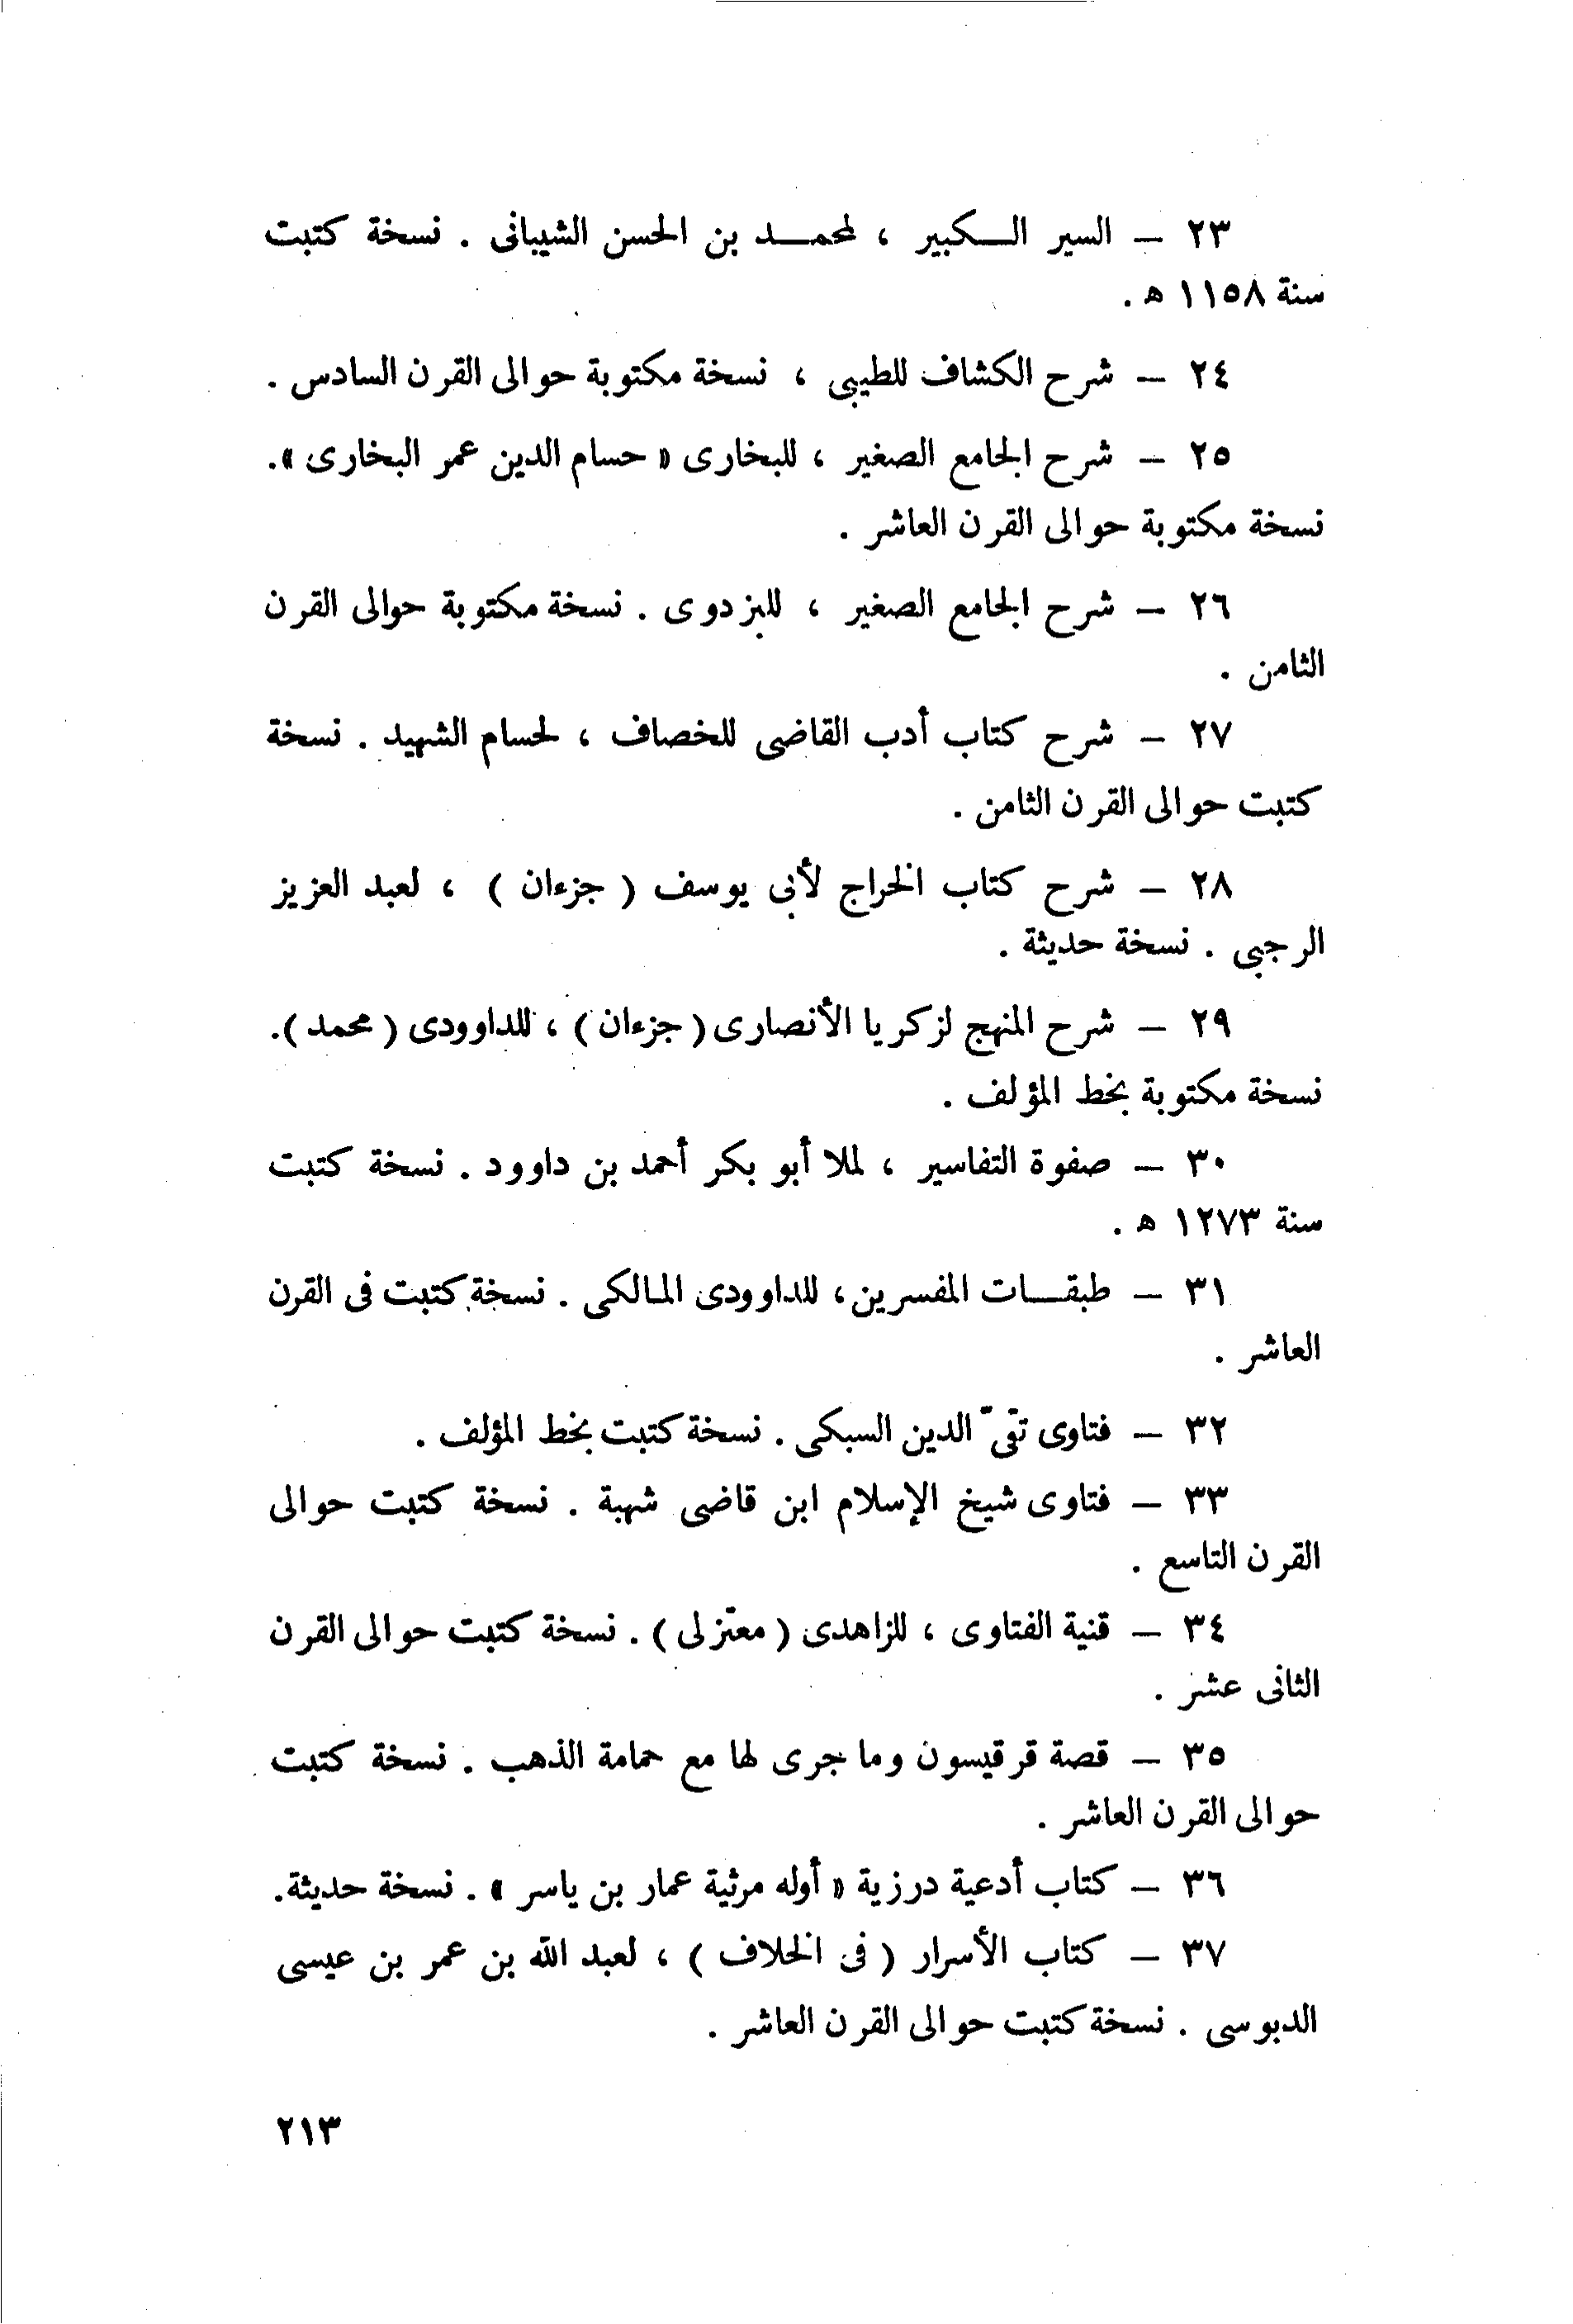 ٢٣ – السير الكبير ، لمحمد بن الحسن الشيبانى . نسخة كتبت
سنة ١١٥٨ ه .
٢٤ – شرح الكشاف للطيبى ، نسخة مكتوبة حوالى القرن السادس .
٢٥ – شرح الجامع الصغير ، للبخارى « حسام الدين عمر البخارى ».
نسخة مكتوبة حوالى القرن العاشر .
٢٦ – شرح الجامع الصغير ، للبزدوى . نسخة مكتوبة حوالى القرن
الثامن .
٢٧ – شرح كتاب أدب القاضى للخصاف ، لحسام الشهيد . نسخة
كتبت حوالى القرن الثامن .
٢٨ – شرح كتاب الخراج لأبى يوسف ( جزءان ) ، لعبد العزيز
الرجبى . نسخة حديثة .
٢٩ – شرح المنهج لزكريا الأنصارى ( جزءان ) ، للداوودى ( محمد ).
نسخة مكتوبة بخط المؤلف .
٣٠ – صفوة التفاسير ، لملا أبو بكر أحمد بن داوود . نسخة كتبت
سنة ١٢٧٣ ه .
٣١ – طبقات المفسرين ، للداوودى المالكى . نسخة كتبت فى القرن
العاشر .
٣٢ – فتاوى تقىّ الدين السبكى . نسخة كتبت بخط المؤلف .
٣٣ – فتاوى شيخ الإسلام ابن قاضى شهبة . نسخة كتبت حوالى
القرن التاسع .
٣٤ – قنية الفتاوى ، للزاهدى ( معتزلى ) . نسخة كتبت حوالى القرن
الثانى عشر .
٣٥ – قصة قرقيسون وما جرى لها مع حمامة الذهب . نسخة كتبت
حوالى القرن العاشر .
٣٦ – كتاب أدعية درزية « أوله مرثية عمار بن ياسر » . نسخة حديثة.
٣٧ – كتاب الأسرار ( فى الخلاف ) ، لعبد الله بن عمر بن عيسى
الدبوسى . نسخة كتبت حوالى القرن العاشر .
٢١٣